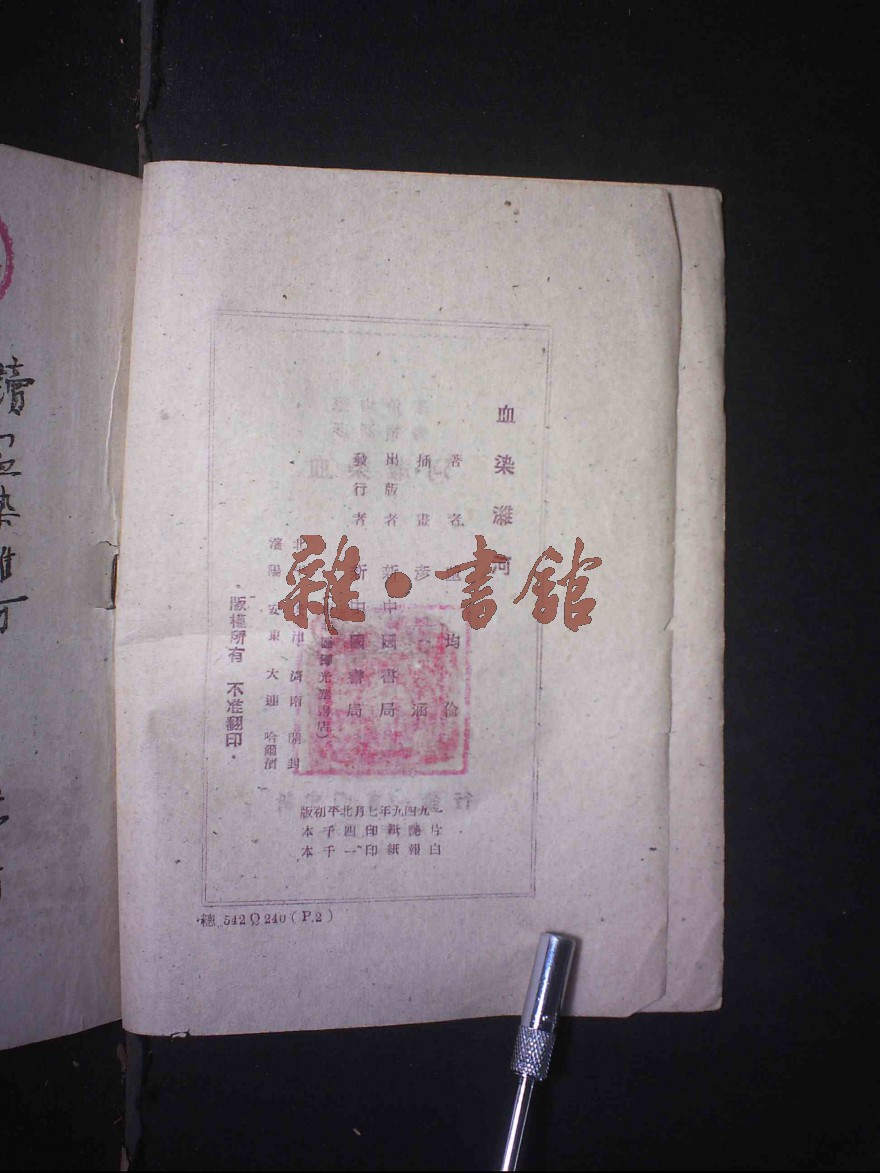 血染濰河
著者 均倫
插畫 彦涵
出版者 新中國書局
發行者 新中國書局
光華書店)
濟南 開封
瀋陽 安東 大連 哈爾濱
版權所有 不准翻印
一九四九年七月北平初版
片艷紙印四千本
白報紙印一千本
總 542 Q 240 ( P. 2 )
讀血染濰河
雜·書館